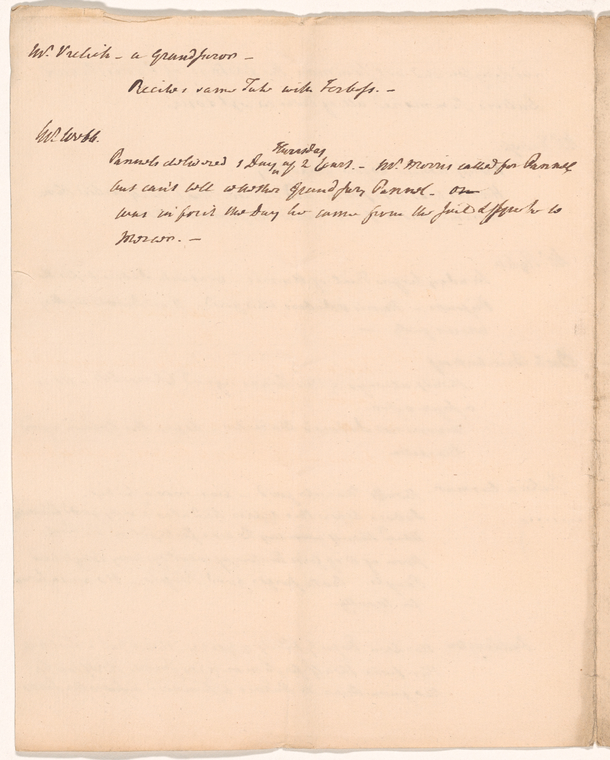 Mr. Vrelich - a Grandjuror -
Recites same Tale with Forbess. -
Mr. Webb.
Pannels delivered 1 Day of 2 Court. - Mr. Morris called for Pannel
Thursday
but can't tell whether Grand jury Pannel - on
was in forit the Day he came from the Jail & spoke to
Mercer. -